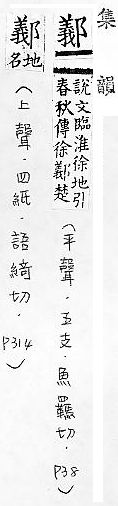 集韻
鄯 說文臨淮徐地引春秋傳徐鄯楚（平聲．五支．魚羈切．P38）
鄯 地名（上聲．四紙．語綺切．P314）